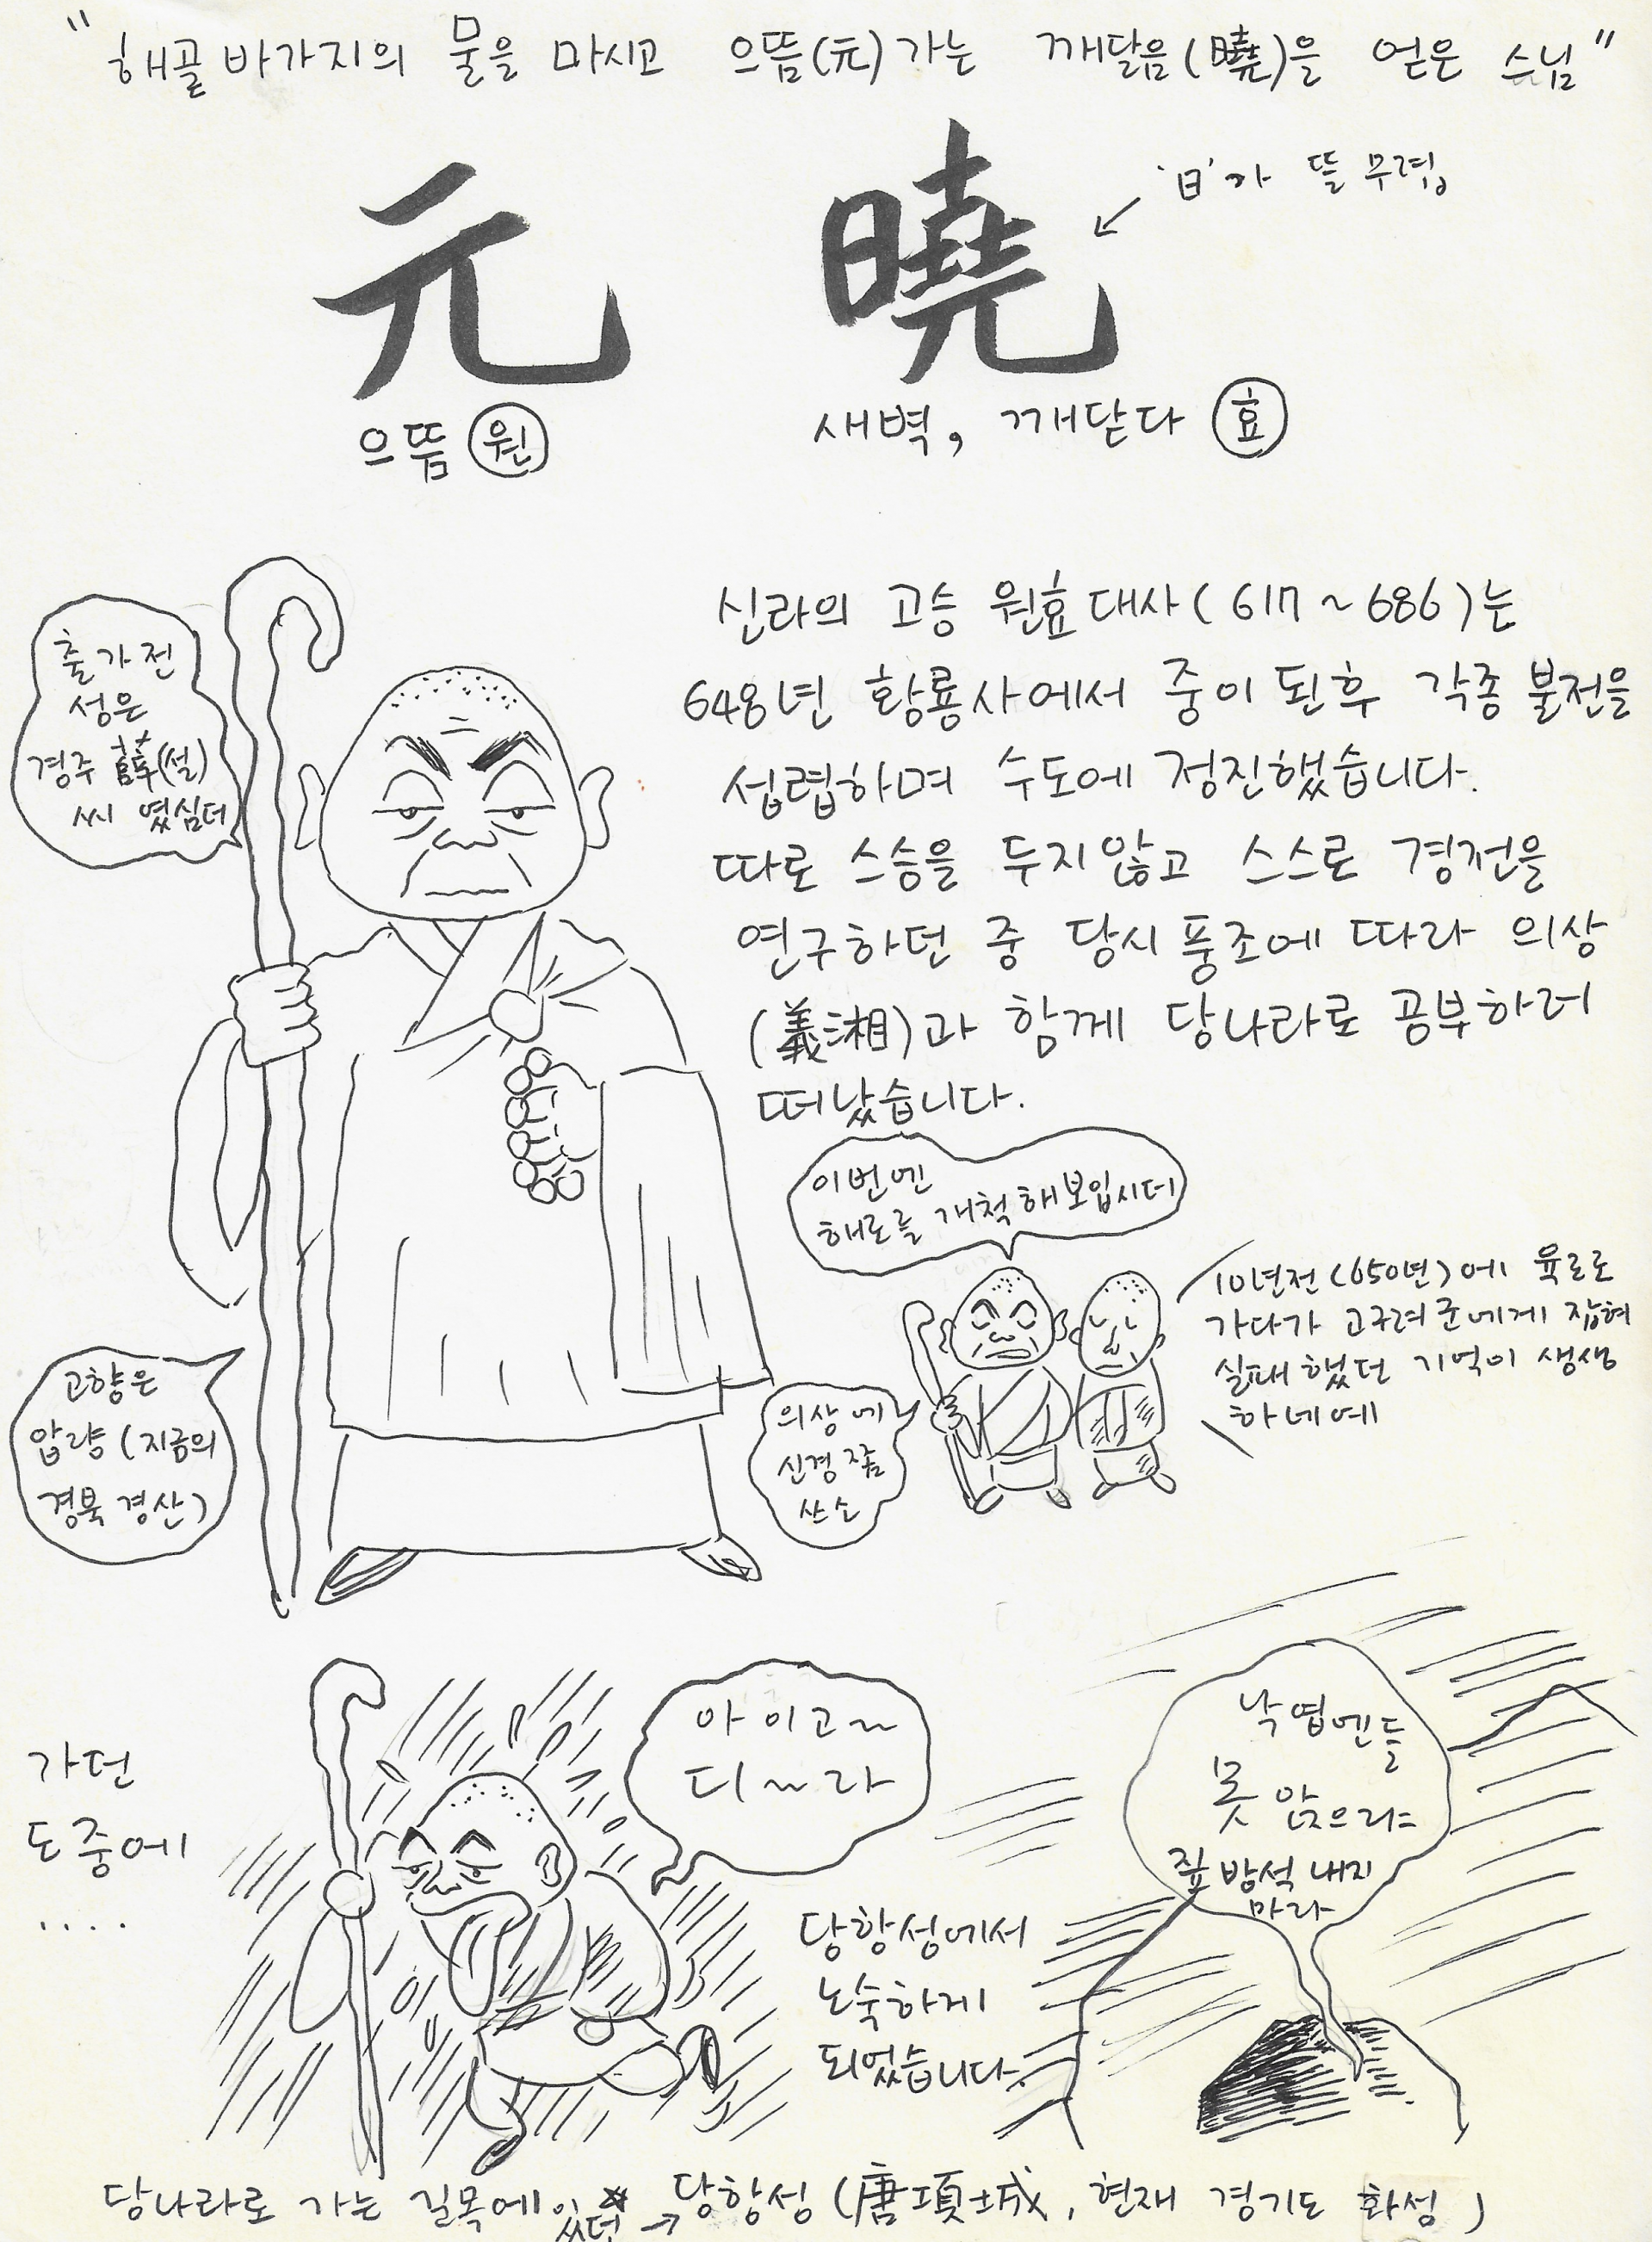 "해골바가지의 물을 마시고 으뜸(元)가는 깨달음(曉)을 얻은 스님"
元 曉
'日'가 뜰 무렵
으뜸 원
새벽, 깨닫다 효
신라의 고승 원효대사(617~686)는
648년 황룡사에서 중이 된후 각종 불전을
섭렵하며 수도에 정진했습니다.
따로 스승을 두지않고 스스로 경전을
연구하던 중 당시 풍조에 따라 의상
(義湘)과 함께 당나라로 공부하러
떠났습니다.
출가전
성은
경주 薛(설)
씨 였심더
고향은
압량 (지금의
경북 경산)
이번엔
해로를 개척해보입시더
10년전(650년)에 육로로
가다가 고구려군에게 잡혀
실패했던 기억이 생생
하네예
의상에
신경 쫌
쓰소
가던
도중에
....
아이고~
디~라
당항성에서
노숙하게
되었습니다.
낙엽엔들
못 앉으랴
짚방석 내지
마라
당나라로 가는 길목에 있던 → 당항성 (唐項城, 현재 경기도 화성)